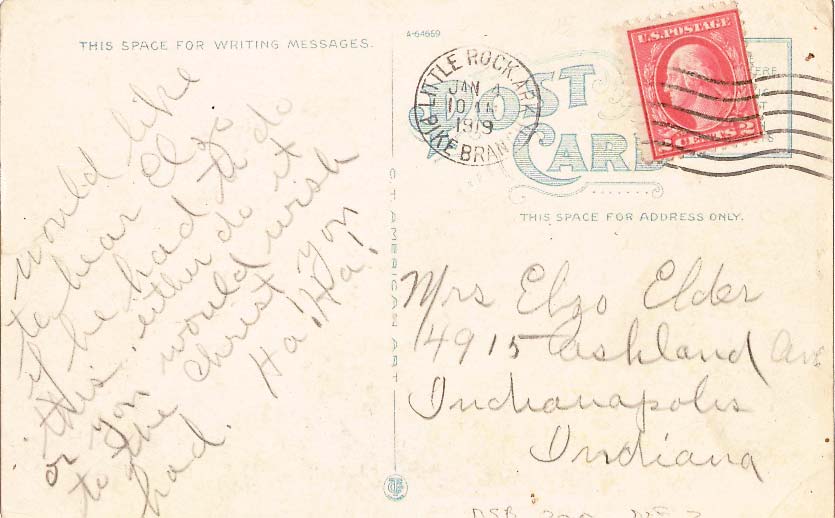 THIS SPACE FOR WRITING MESSAGES.
would like
to hear Elzo
if he had to do
this, either do it
or you would wish
to the Christ you
had. Ha! Ha!
A-64669
C.T. AMERICAN ART
POST
CARD
LITTLE ROCK, ARK.
JAN 4
1919
PIKE BRANCH
U.S. POSTAGE
2 CENTS 2
THIS SPACE FOR ADDRESS ONLY.
Mrs Elzo Elder
4915 Ashland Ave
Indianapolis
Indiana